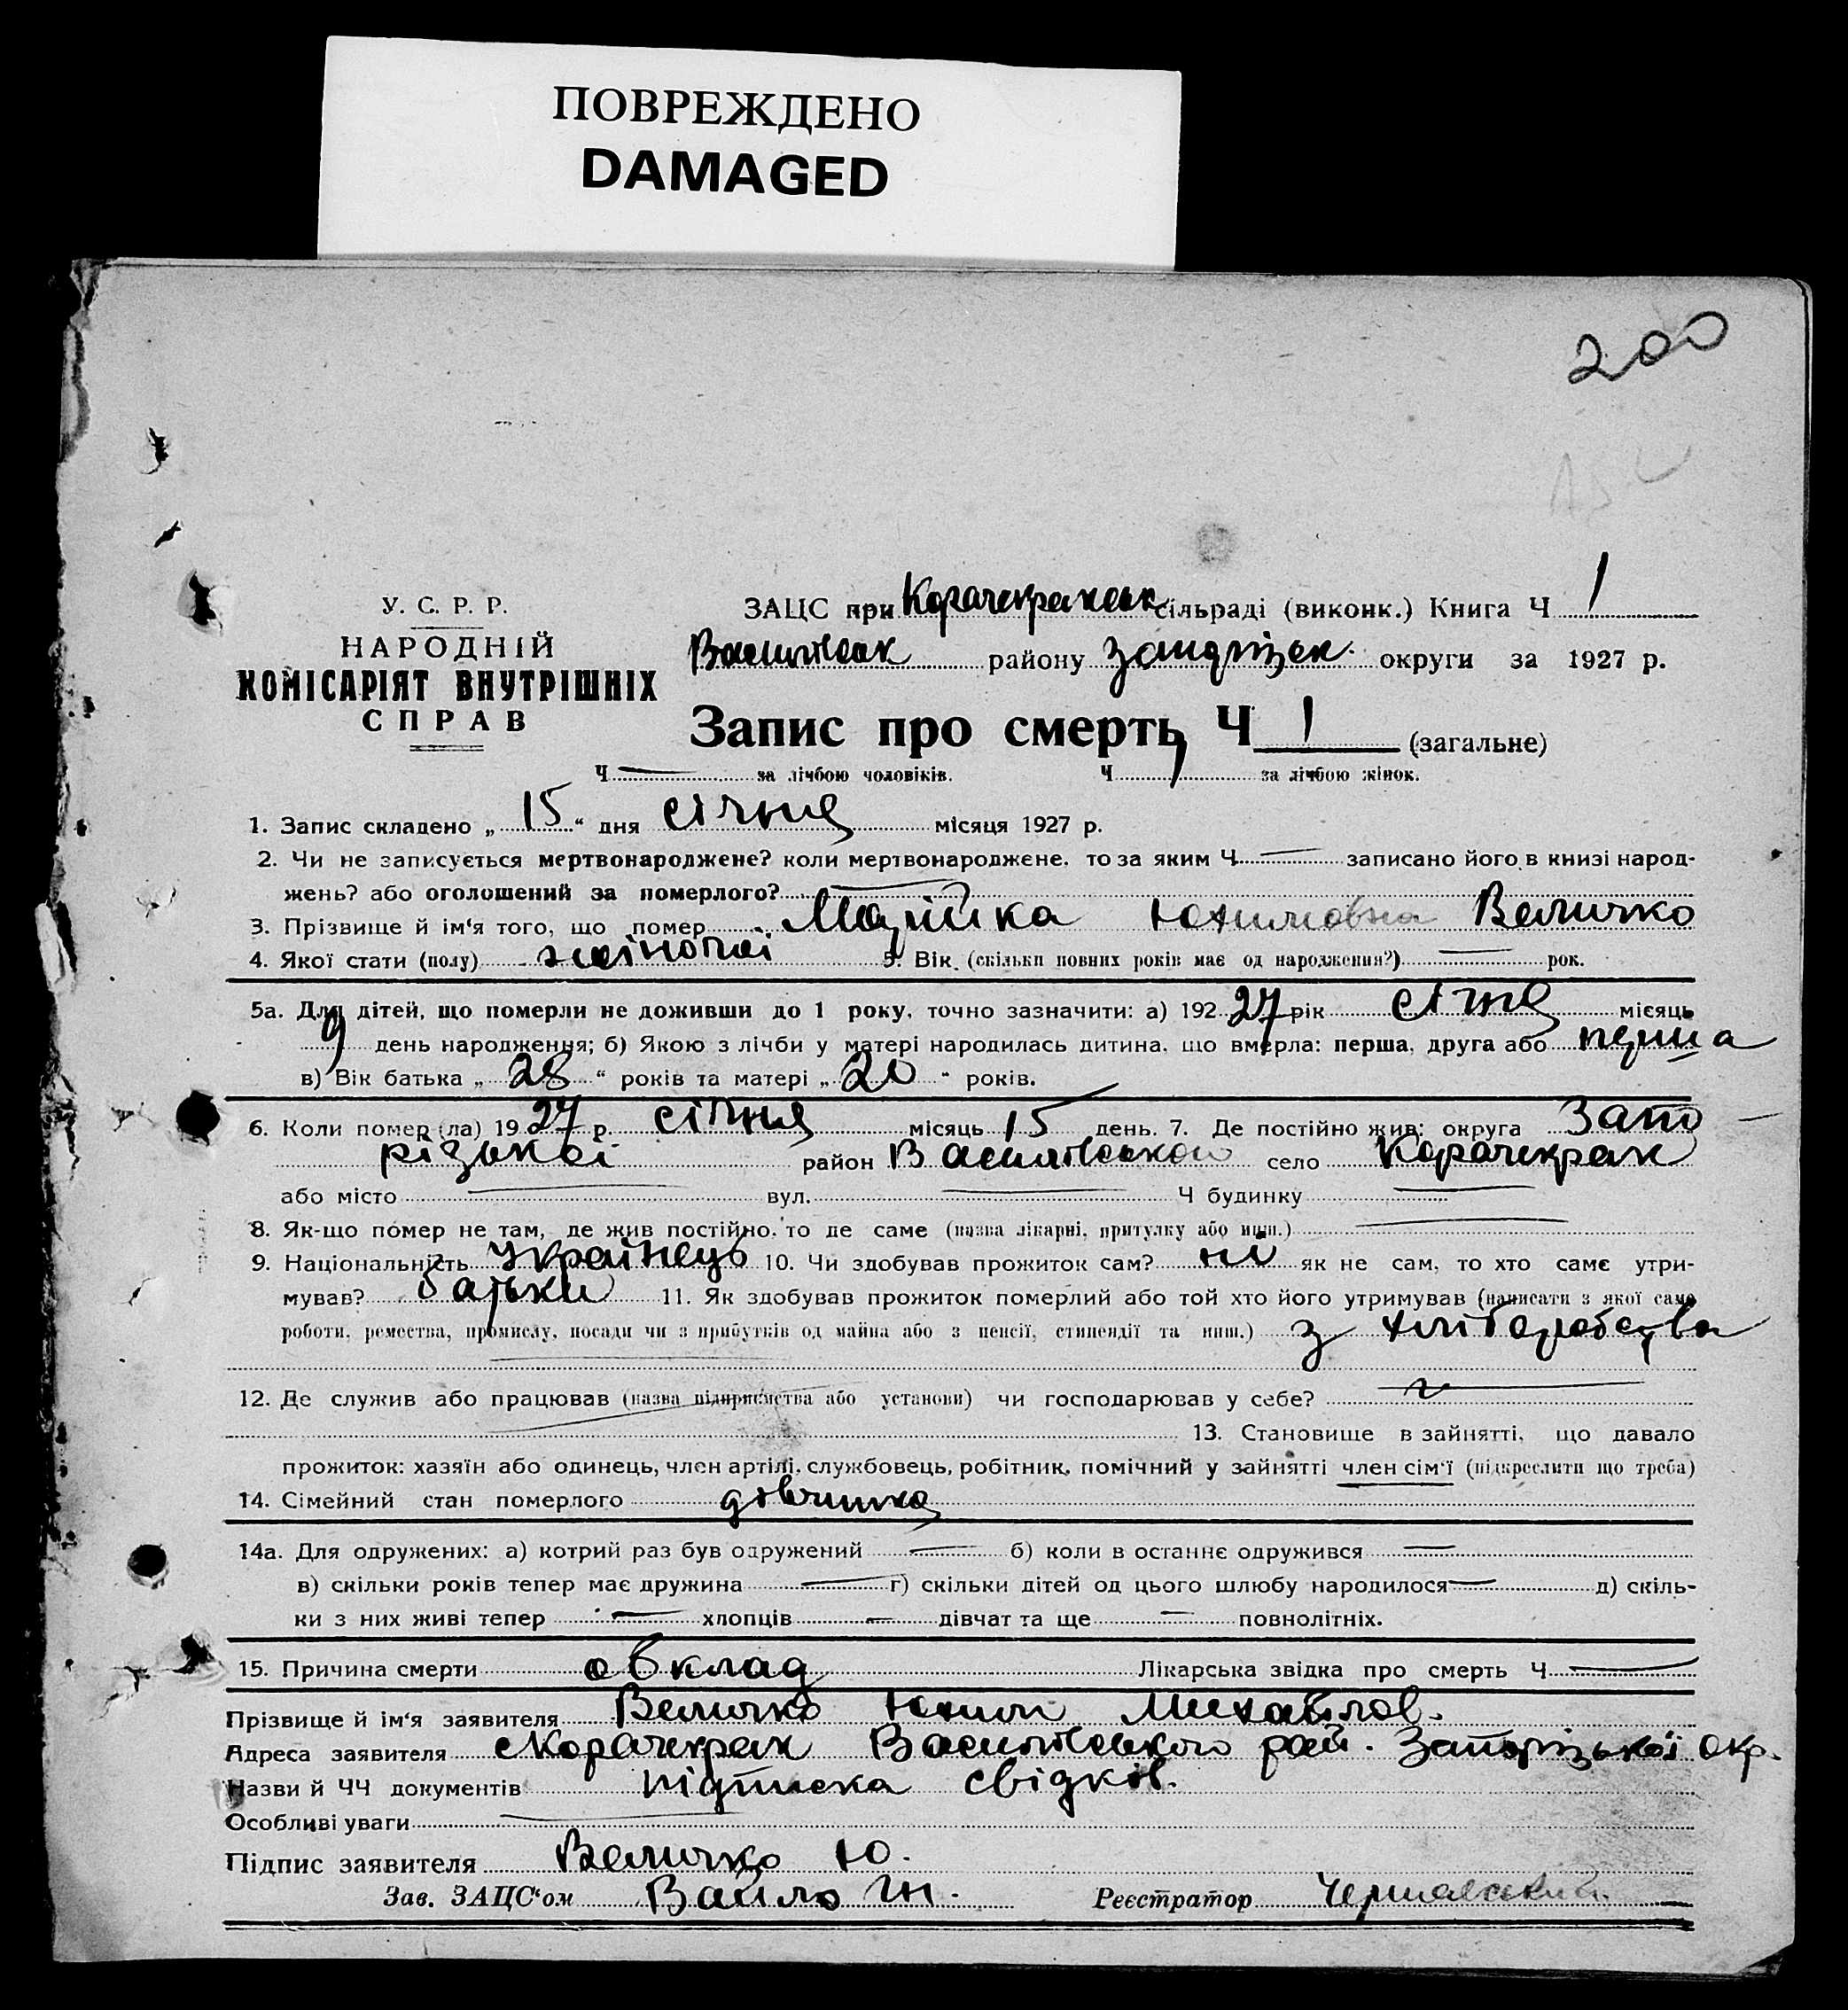 ПОВРЕЖДЕНО
DAMAGED
200
У. С. Р. Р.
НАРОДНІЙ
КОМІСАРІЯТ ВНУТРІШНІХ
СПРАВ
ЗАЦС при Карачекракськ сільраді (виконк.) Книга Ч 1
Василівськ району Запоріжськ. округи за 1927 р.
Запис про смерть Ч 1 (загальне)
Ч — за лічбою чоловіків. Ч 1 за лічбою жінок.
1. Запис складено „ 15 “ дня січня місяця 1927 р.
2. Чи не записується мертвонароджене? коли мертвонароджене, то за яким Ч — записано його в книзі народ-
жень? або оголошений за померлого? —
3. Прізвище й ім'я того, що помер Марійка Юхимовна Величко
4. Якої стати (полу) жіночої 5. Вік (скільки повних років має од народження?) — рок.
5а. Для дітей, що померли не доживши до 1 року, точно зазначити: а) 192 27 рік січня місяць
9 день народження; б) Якою з лічби у матері народилась дитина, що вмерла: перша, друга або перша
в) Вік батька „ 28 “ років та матері „ 20 “ років.
6. Коли помер (ла) 19 27 р. січня місяць 15 день. 7. Де постійно жив: округа Запо
різької район Василівського село Карачекрак
або місто — вул. — Ч будинку —
8. Як-що помер не там, де жив постійно, то де саме (назва лікарні, притулку або инш.) —
9. Національність Українець 10. Чи здобував прожиток сам? ні як не сам, то хто саме утри-
мував? батьки 11. Як здобував прожиток померлий або той хто його утримував (написати з якої саме
роботи, ремества, промислу, посади чи з прибутків од майна або з пенсії, стипендії та инш.) з хліборобства
12. Де служив або працював (назва підприємства або установи) чи господарював у себе? —
13. Становище в зайнятті, що давало
прожиток: хазяїн або одинець, член артілі, службовець, робітник, помічний у зайнятті член сім'ї (підкреслити що треба)
14. Сімейний стан померлого дівчинка
14а. Для одружених: а) котрий раз був одружений — б) коли в останнє одружився —
в) скільки років тепер має дружина — г) скільки дітей од цього шлюбу народилося — д) скіль-
ки з них живі тепер — хлопців — дівчат та ще — повнолітніх.
15. Причина смерти обклад Лікарська звідка про смерть Ч —
Прізвище й ім'я заявителя Величко Юхим Михайлов.
Адреса заявителя с Карачекрак Василівського рай. Запорізької окр.
Назви й ЧЧ документів підписка свідків.
Особливі уваги —
Підпис заявителя Величко Ю.
Зав. ЗАЦС'ом Вайло Реєстратор Чернявський